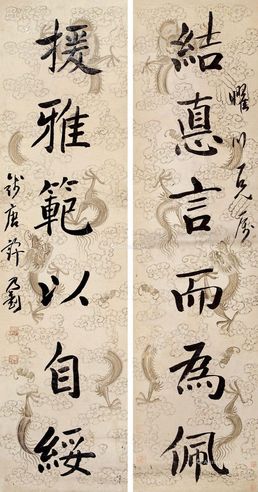 曜川兄屬
結惪言而為佩
援雅範以自綏
錢唐許乃釗